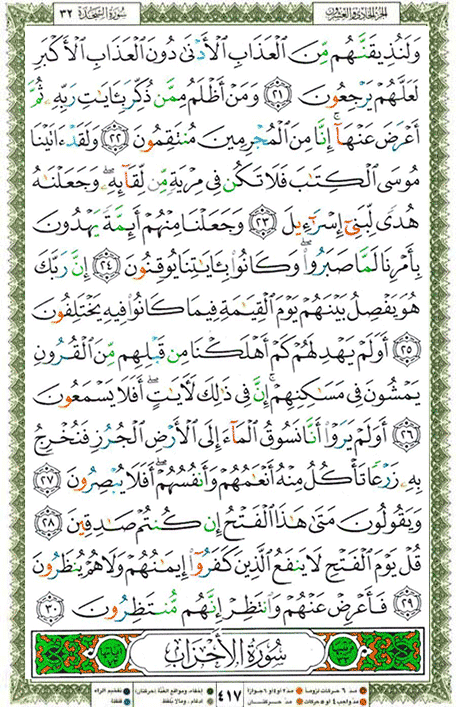 الجزء الحادي والعشرون سورة السجدة ٣٢
وَلَنُذِيقَنَّهُم مِّنَ ٱلْعَذَابِ ٱلْأَدْنَىٰ دُونَ ٱلْعَذَابِ ٱلْأَكْبَرِ
لَعَلَّهُمْ يَرْجِعُونَ ٢١ وَمَنْ أَظْلَمُ مِمَّن ذُكِّرَ بِـَٔايَٰتِ رَبِّهِۦ ثُمَّ
أَعْرَضَ عَنْهَآ ۚ إِنَّا مِنَ ٱلْمُجْرِمِينَ مُنتَقِمُونَ ٢٢ وَلَقَدْ ءَاتَيْنَا
مُوسَى ٱلْكِتَٰبَ فَلَا تَكُن فِى مِرْيَةٍ مِّن لِّقَآئِهِۦ ۖ وَجَعَلْنَٰهُ
هُدًى لِّبَنِىٓ إِسْرَٰٓءِيلَ ٢٣ وَجَعَلْنَا مِنْهُمْ أَئِمَّةً يَهْدُونَ
بِأَمْرِنَا لَمَّا صَبَرُوا۟ ۖ وَكَانُوا۟ بِـَٔايَٰتِنَا يُوقِنُونَ ٢٤ إِنَّ رَبَّكَ
هُوَ يَفْصِلُ بَيْنَهُمْ يَوْمَ ٱلْقِيَٰمَةِ فِيمَا كَانُوا۟ فِيهِ يَخْتَلِفُونَ
٢٥ أَوَلَمْ يَهْدِ لَهُمْ كَمْ أَهْلَكْنَا مِن قَبْلِهِم مِّنَ ٱلْقُرُونِ
يَمْشُونَ فِى مَسَٰكِنِهِمْ ۚ إِنَّ فِى ذَٰلِكَ لَـَٔايَٰتٍ ۖ أَفَلَا يَسْمَعُونَ
٢٦ أَوَلَمْ يَرَوْا۟ أَنَّا نَسُوقُ ٱلْمَآءَ إِلَى ٱلْأَرْضِ ٱلْجُرُزِ فَنُخْرِجُ
بِهِۦ زَرْعًا تَأْكُلُ مِنْهُ أَنْعَٰمُهُمْ وَأَنفُسُهُمْ ۖ أَفَلَا يُبْصِرُونَ ٢٧
وَيَقُولُونَ مَتَىٰ هَٰذَا ٱلْفَتْحُ إِن كُنتُمْ صَٰدِقِينَ ٢٨
قُلْ يَوْمَ ٱلْفَتْحِ لَا يَنفَعُ ٱلَّذِينَ كَفَرُوٓا۟ إِيمَٰنُهُمْ وَلَا هُمْ يُنظَرُونَ
٢٩ فَأَعْرِضْ عَنْهُمْ وَٱنتَظِرْ إِنَّهُم مُّنتَظِرُونَ ٣٠
سُورَةُ الأَحْزَابِ
٤١٧